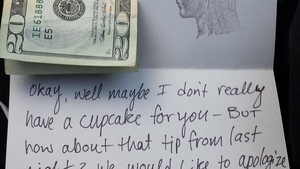 20
IE6188
E5
20
Okay, well maybe I don't really
have a cupcake for you - BUT
how about that tip from last
night? We would like to apologize